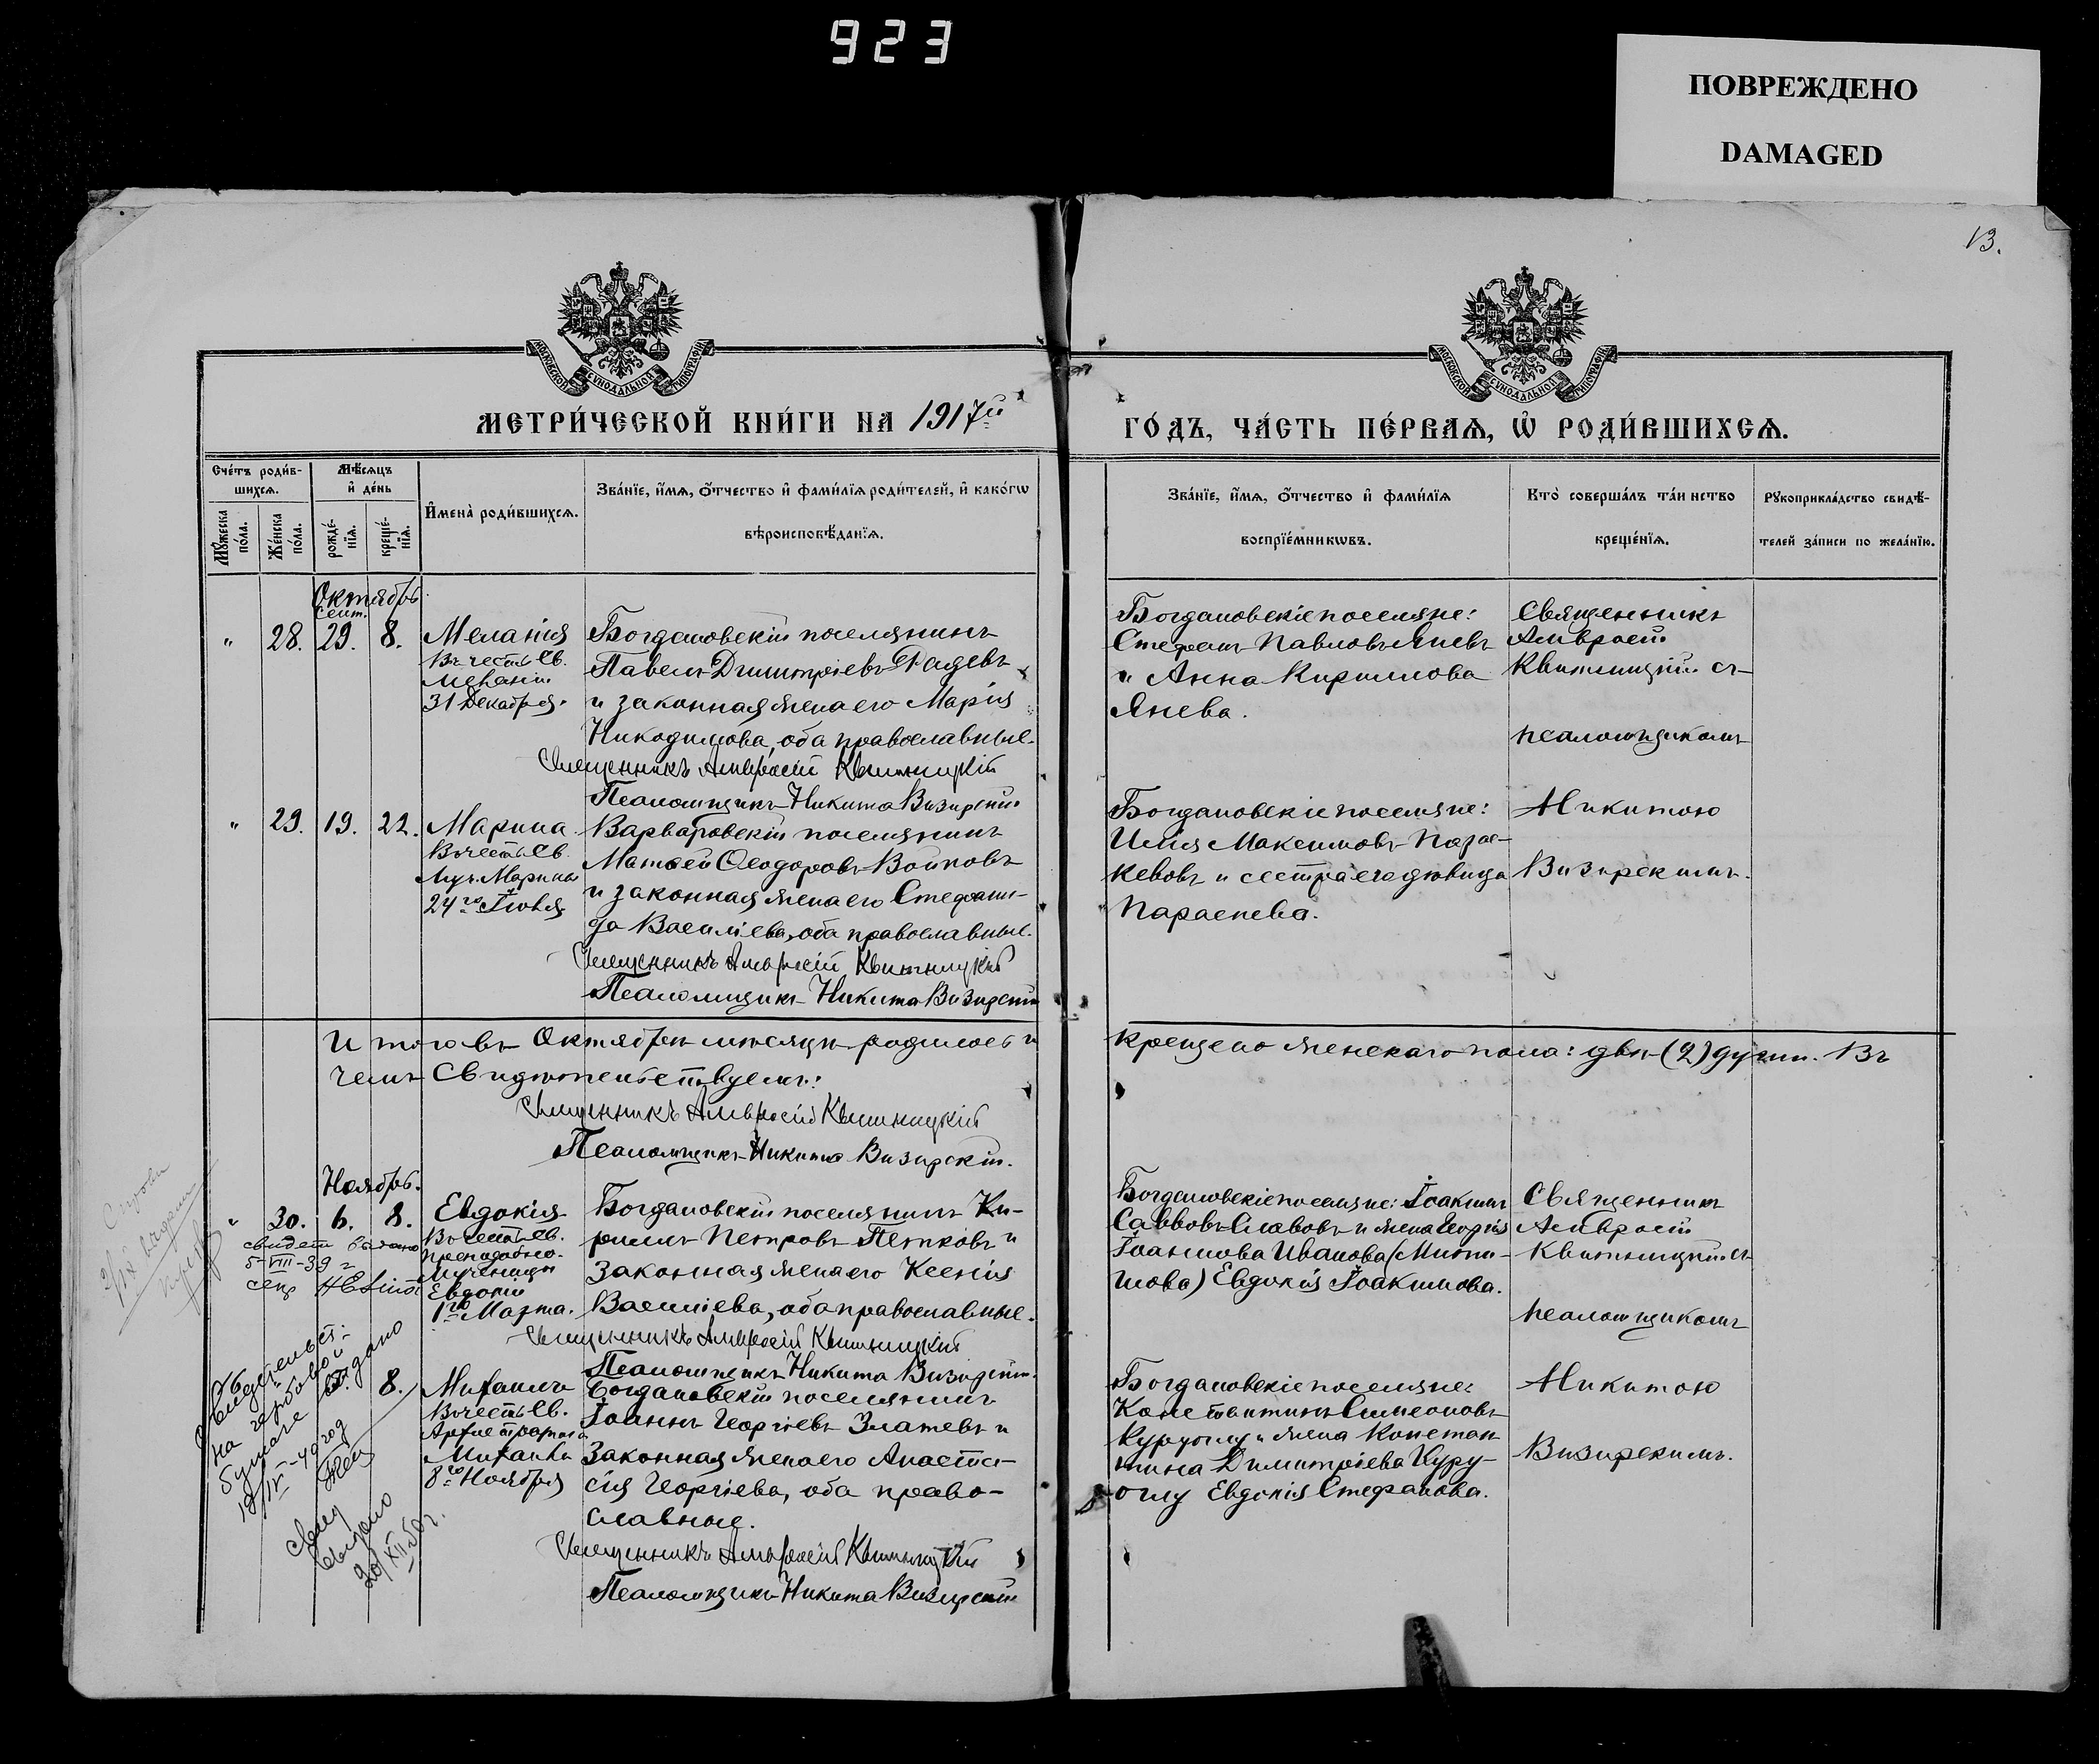 923
ПОВРЕЖДЕНО
DAMAGED
13.
МОСКОВСКОЙ СѴНОДАЛЬНОЙ ТИПОГРАФІИ
МОСКОВСКОЙ СѴНОДАЛЬНОЙ ТИПОГРАФІИ
МЕТРИ́ЧЕСКОЙ КНИ́ГИ НА 1917й
ГО́ДЪ, ЧА́СТЬ ПЕ́РВАѦ, Ѽ РОДИ́ВШИХСѦ.
Сче́тъ роди́в-
шихсѧ.
Мꙋ́жеска по́ла.
Же́нска по́ла.
Мѣ́сѧцъ
и҆ де́нь
рожде́-нїѧ.
креще́-нїѧ.
И҆мена̀ роди́вшихсѧ.
Зва́нїе, и҆́мѧ, ѻ҆́тчество и҆ фами́лїѧ роди́телей, и҆ како́гѡ
вѣроисповѣ́данїѧ.
Зва́нїе, и҆́мѧ, ѻ҆́тчество и҆ фами́лїѧ
воспрїе́мникѡвъ.
Кто̀ соверша́лъ та́инство
креще́нїѧ.
Рꙋкоприкла́дство свидѣ́-
телей за́писи по жела́нїю.
Октябрь.
сент.
" 28. 29. 8. Меланія
Въ честь Св.
Меланіи
31 Декабря.
Богдановскій поселянинъ
Павелъ Димитріевъ Радевъ
и законная жена его Марія
Никодимова, оба православные.
Священникъ Амвросій Квитницкій
Псаломщикъ Никита Визирскій
Богдановскіе поселяне:
Стефанъ Павловъ Яневъ
и Анна Кириллова
Янева.
Священникъ
Амвросій
Квитницкій съ
псаломщикомъ
" 29. 19. 22. Марина
Въ честь Св.
Муч. Марины
24го Іюля
Варваровскій поселянинъ
Матвей Ѳеодоровъ Войновъ
и законная жена его Стефани-
да Василіева, оба православные.
Священникъ Амвросій Квитницкій
Псаломщикъ Никита Визирскій
Богдановскіе поселяне:
Илія Максимовъ Парас-
кевовъ и сестра его дѣвица
Параскева.
Никитою
Визирскимъ.
Итого въ Октябрѣ мѣсяцѣ родилось и крещено женскаго пола: двѣ (2) души. Въ
чемъ свидѣтельствуемъ:
Священникъ Амвросій Квитницкій
Псаломщикъ Никита Визирскій.
Ноябрь.
" 30. 6. 8. Евдокія
Въ честь Св.
Преподобно-
мученицы
Евдокіи
1го Марта.
свидет выдано
5-VIII-39 г
Богдановскій поселянинъ Ки-
риллъ Петровъ Петковъ и
законная жена его Ксенія
Василіева, оба православные.
Священникъ Амвросій Квитницкій
Псаломщикъ Никита Визирскій.
Богдановскіе поселяне: Іоакимъ
Савовъ Славовъ и жена Георгія
Іоаннова Иванова (Мити-
шова) Евдокія Іоакимова.
Священникъ
Амвросій
Квитницкій съ
псаломщикомъ
8. Михаилъ
Въ честь Св.
Архистратига
Михаила
8го Ноября
Свидетельст.
на гербовой
бумаге выдано
18/IV-40 год
выдано
20/XII
Богдановскій поселянинъ
Іоаннъ Георгіевъ Златевъ и
законная жена его Анаста-
сія Георгіева, оба право-
славные.
Священникъ Амвросій Квитницкій
Псаломщикъ Никита Визирскій
Богдановскіе поселяне:
Константинъ Симеоновъ
Куруоглу и жена Констан
тина Димитріева Куру-
оглу Евдокія Стефанова.
Никитою
Визирскимъ.